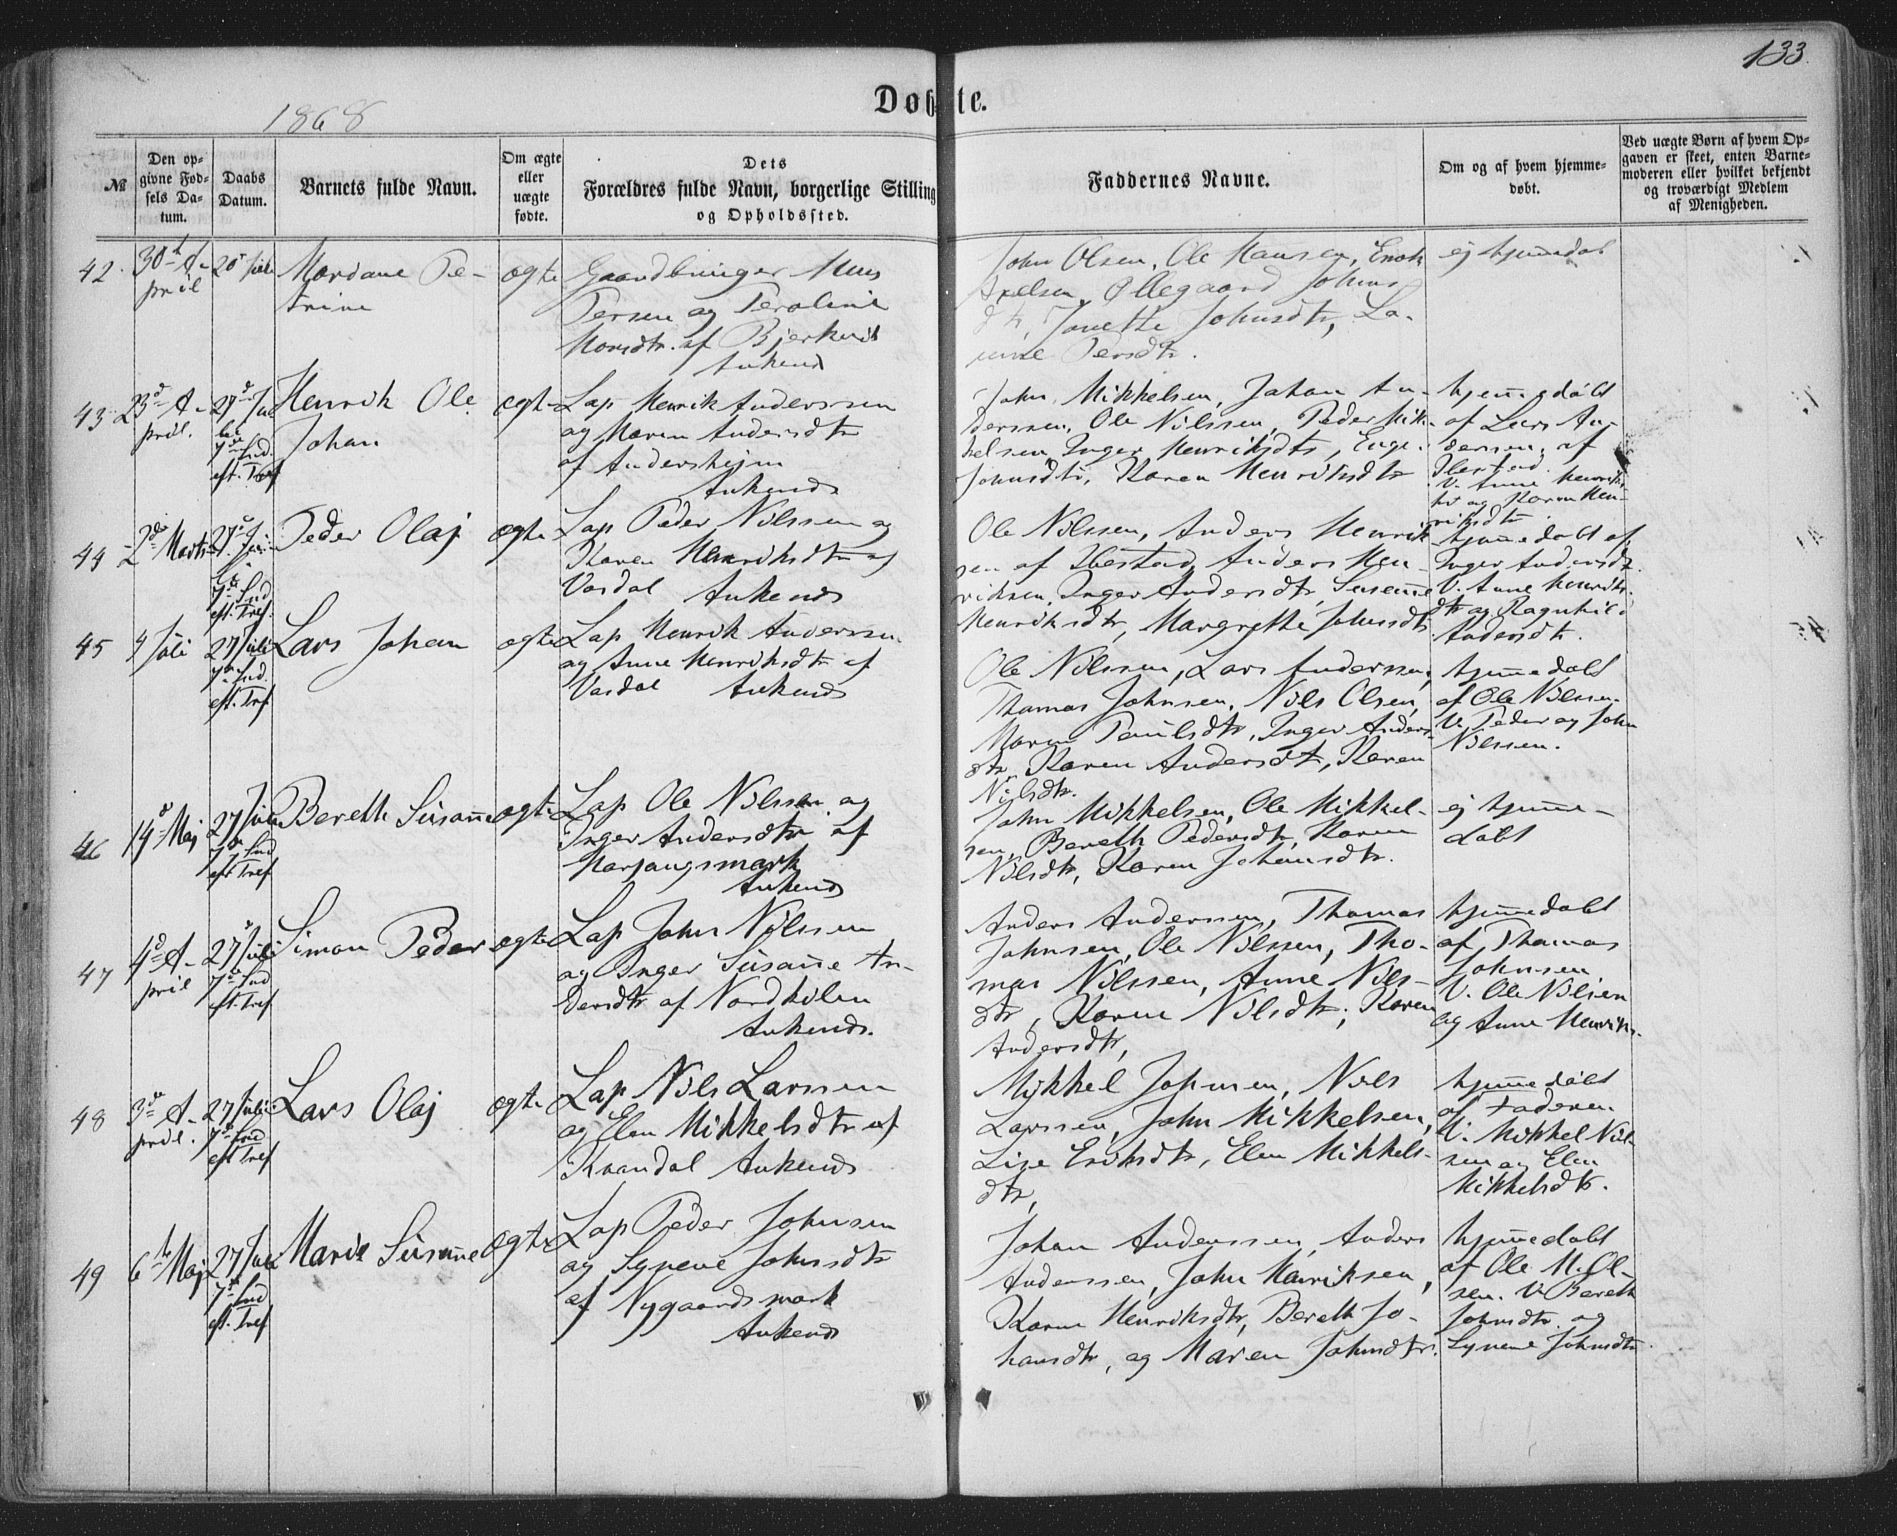 133.
1868
Døbte.
№
Den op=
givne Fød=
sels Da=
tum.
Daabs
Datum.
Barnets fulde Navn.
Om ægte
eller
uægte
fødte.
Dets
Forældres fulde Navn, borgerlige Stilling
og Opholdssted.
Faddernes Navne.
Om og af hvem hjemme=
døbt.
Ved uægte Børn af hvem Op=
gaven er skeet, enten Barne=
moderen eller hvilket bekjendt
og troværdigt Medlem
af Menigheden.
42. 30te A-
pril
Mordane Pe-
trine
ægte
Gaardbruger
Persen og Peroline
Monsdtr. af Bjerkvik
Ankenes
John Olsen, Ole Hansen, Enok
Axelsen, Ollegaard Johns
dtr, Janette Johnsdtr, La-
Persdtr.
ej hjemedøbt
43 23de A-
pril.
7de Snd.
eft. Tref
Henrik Ole
Johan
ægte
Lap Henrik Anderssen
og Maren Andersdtr
af Andershejm
Ankenes
John Mikkelsen, Johan An-
derssen, Ole Nilssen, Peder Mik-
kelsen, Inger Henriksdtr,
Johnsdtr, Karen Henriksdtr
hjemedøbt
af Lars An-
dersen af
V. Anne Henriks
dtr og Karen Hen-
riksdtr
44 2de Marts
7de Snd
eft. Tref.
Peder Olaj
ægte
Lap Peder Nilssen og
Karen Henriksdtr af
Vasdal Ankenes
Ole Nilssen, Anders Henrik-
sen af Ibestad, Anders Hen-
riksen, Inger Andersdtr, Susanne
Henriksdtr, Margrethe Johnsdtr
hjemedøbt af
Inger Andersdtr.
V. Anne Henriks-
dtr og Ragnhild
Andersdtr.
45 4 Juli 27 Juli
7de Snd.
eft. Tref
Lars Johan
ægte
Lap Henrik Anderssen
og Anne Henriksdtr af
Vasdal Ankenes
Ole Nilssen, Lars Anderssen,
Thomas Johnsen, Nils Olsen,
Maren Paulsdtr, Inger Anders-
dtr, Karen Andersdtr, Karen
Nilsdtr.
hjemedøbt
af Ole Nilssen.
V. Peder og John
Nilssen.
46 14de Maj 27 Juli
7de Snd
eft Tref
Bereth Susanne
ægte
Lap Ole Nilssen og
Inger Andersdtr af
Harjangsmark
Ankenes
John Mikkelsen, Ole Mikkel-
sen, Bereth Pedersdtr, Karen
Nilsdtr, Karen Johansdtr.
ej hjemme-
døbt
47 4de A-
pril
27 Juli
7de Snd
eft. Tref
Simon Peder
ægte
Lap John Nilssen
og Inger Susanne An-
dersdtr af Nordkilen
Ankenes.
Anders Anderssen, Thomas
Johnsen, Ole Nilssen, Tho-
mas Nilssen, Anne Nils-
dtr, Karen Nilsdtr, Karen
Andersdtr,
hjemedøbt
af Thomas
Johnsen.
V. Ole Nilssen
og Anne Henriks.
48 3de A-
pril.
27 Juli
7de Snd
eft Tref
Lars Olaj
ægte
Lap Nils Larssen
og Elen Mikkelsdtr af
Kvandal Ankenes
Mikkel Johnsen, Nils
Larssen, John Mikkelsen,
Lise Eriksdtr, Elen Mikkels-
dtr,
hjemedøbt
af Faderen.
V. Mikkel Nils-
sen og Elen
Mikkelsdtr.
49 6te Maj 27 Juli
7de Snd
eft. Tref
Marie Susanne
ægte
Lap Peder Johnsen
og Synene Johnsdtr
af Nygaardsmark
Ankenes
Johan Anderssen, Anders
Anderssen, John Henriksen,
Karen Henriksdtr, Bereth Jo-
hansdtr, og Maren Johnsdtr.
hjemedøbt
af Ole M. Ol-
sen. V. Bereth
Johnsdtr. og
Synene Johnsdtr.